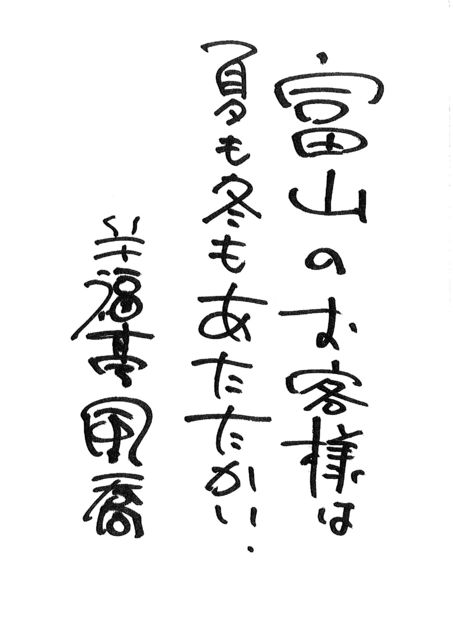 富山のお客様は
夏も冬もあたたかい.
幸福亭風喬